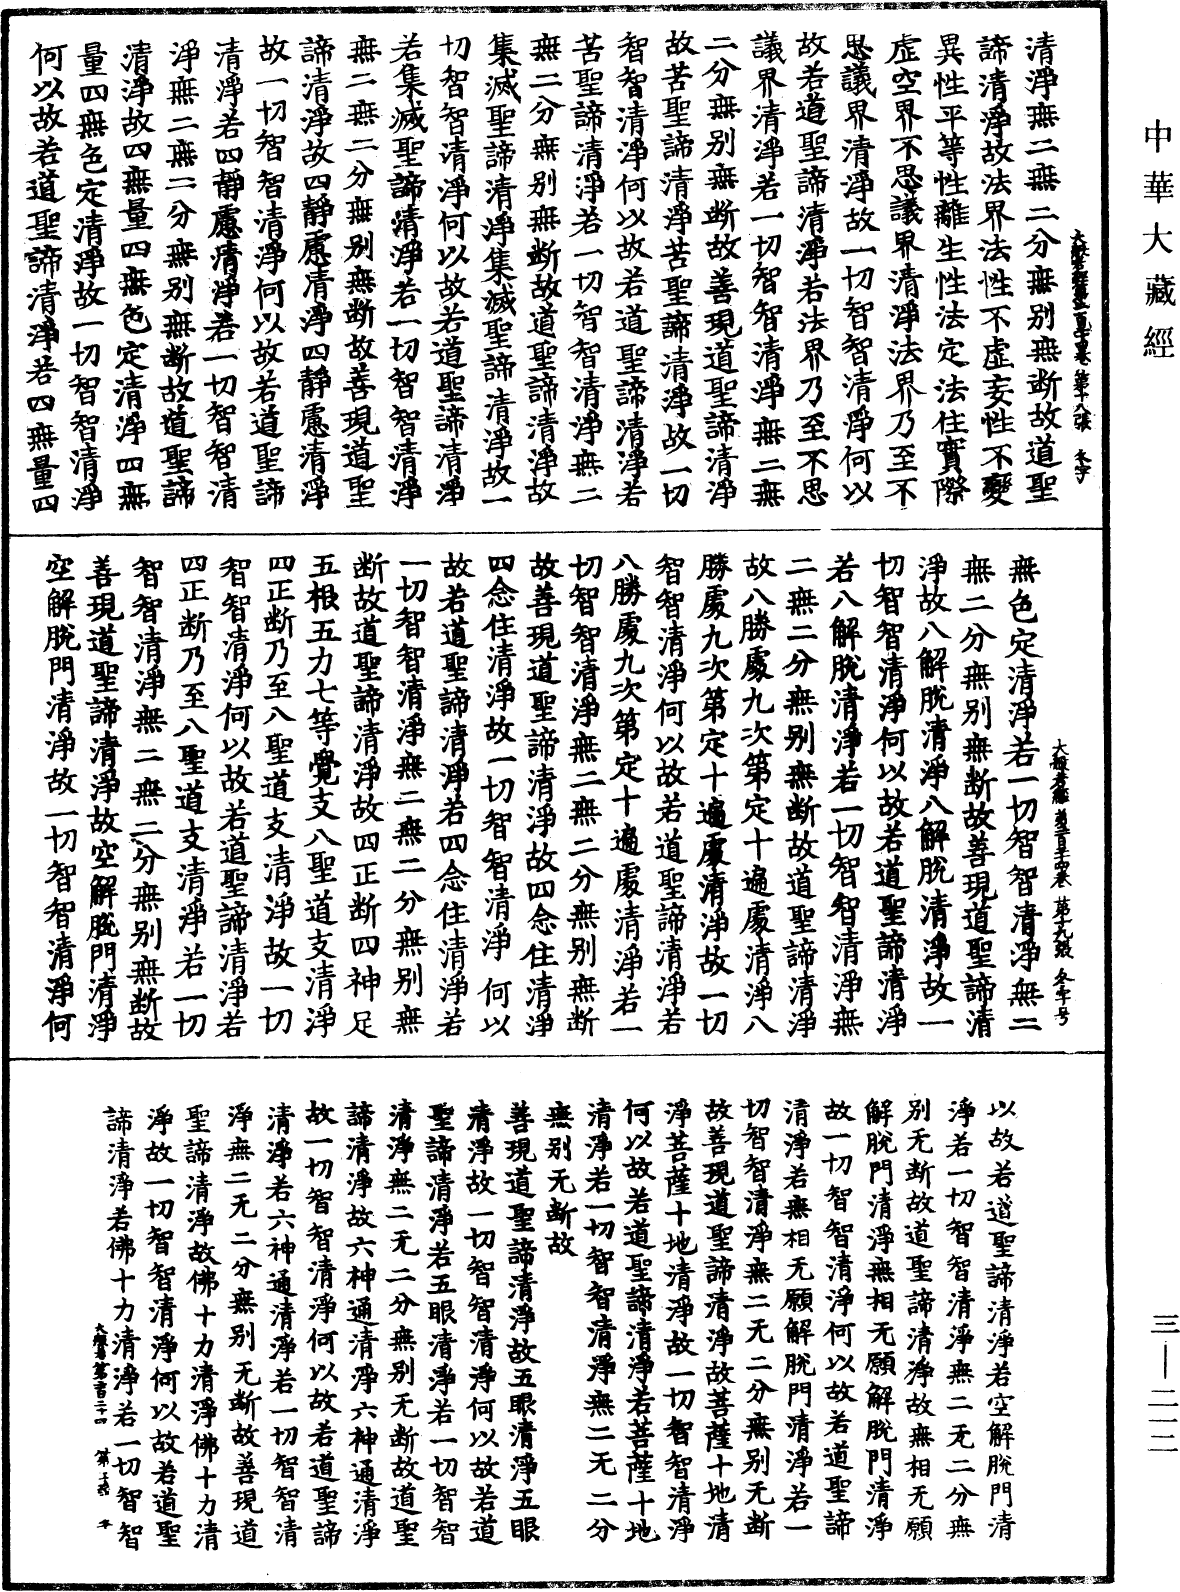 中華大藏經
清淨無二無二分無别無断故道聖
諦清淨故法界法性不虚妄性不變
異性平等性離生性法定法住實際
虚空界不思議界清淨法界乃至不
思議界清淨故一切智智清淨何以
故若道聖諦清淨若法界乃至不思
議界清淨若一切智智清淨無二無
二分無别無断故善現道聖諦清淨
故苦聖諦清淨苦聖諦清淨故一切
智智清淨何以故若道聖諦清淨若
苦聖諦清淨若一切智智清淨無二
無二分無别無断故道聖諦清淨故
集滅聖諦清淨集滅聖諦清淨故一
切智智清淨何以故若道聖諦清淨
若集滅聖諦清淨若一切智智清淨
無二無二分無别無断故善現道聖
諦清淨故四靜慮清淨四靜慮清淨
故一切智智清淨何以故若道聖諦
清淨若四靜慮清淨若一切智智清
淨無二無二分無别無断故道聖諦
清淨故四無量四無色定清淨四無
量四無色定清淨故一切智智清淨
何以故若道聖諦清淨若四無量四
無色定清淨若一切智智清淨無二
無二分無别無断故善現道聖諦清
淨故八解脫清淨八解脫清淨故一
切智智清淨何以故若道聖諦清淨
若八解脫清淨若一切智智清淨無
二無二分無别無断故道聖諦清淨
故八勝處九次第定十遍處清淨八
勝處九次第定十遍處清淨故一切
智智清淨何以故若道聖諦清淨若
八勝處九次第定十遍處清淨若一
切智智清淨無二無二分無别無断
故善現道聖諦清淨故四念住清淨
四念住清淨故一切智智清淨何以
故若道聖諦清淨若四念住清淨若
一切智智清淨無二無二分無别無
断故道聖諦清淨故四正断四神足
五根五力七等覺支八聖道支清淨
四正断乃至八聖道支清淨故一切
智智清淨何以故若道聖諦清淨若
四正断乃至八聖道支清淨若一切
智智清淨無二無二分無别無断故
善現道聖諦清淨故空解脫門清淨
空解脫門清淨故一切智智清淨何
以故若道聖諦清淨若空解脫門清
淨若一切智智清淨無二无二分無
別无断故道聖諦清淨故無相无願
解脫門清淨無相无願解脫門清淨
故一切智智清淨何以故若道聖諦
清淨若無相无願解脫門清淨若一
切智智清淨無二无二分無别无断
故善現道聖諦清淨故菩薩十地清
淨菩薩十地清淨故一切智智清淨
何以故若道聖諦清淨若菩薩十地
清淨若一切智智清淨無二无二分
無别无断故
善現道聖諦清淨故五眼清淨五眼
清淨故一切智智清淨何以故若道
聖諦清淨若五眼清淨若一切智智
清淨無二无二分無别无断故道聖
諦清淨故六神通清淨六神通清淨
故一切智智清淨何以故若道聖諦
清淨若六神通清淨若一切智智清
淨無二无二分無别无断故善現道
聖諦清淨故佛十力清淨佛十力清
淨故一切智智清淨何以故若道聖
諦清淨若佛十力清淨若一切智智
三—二一二